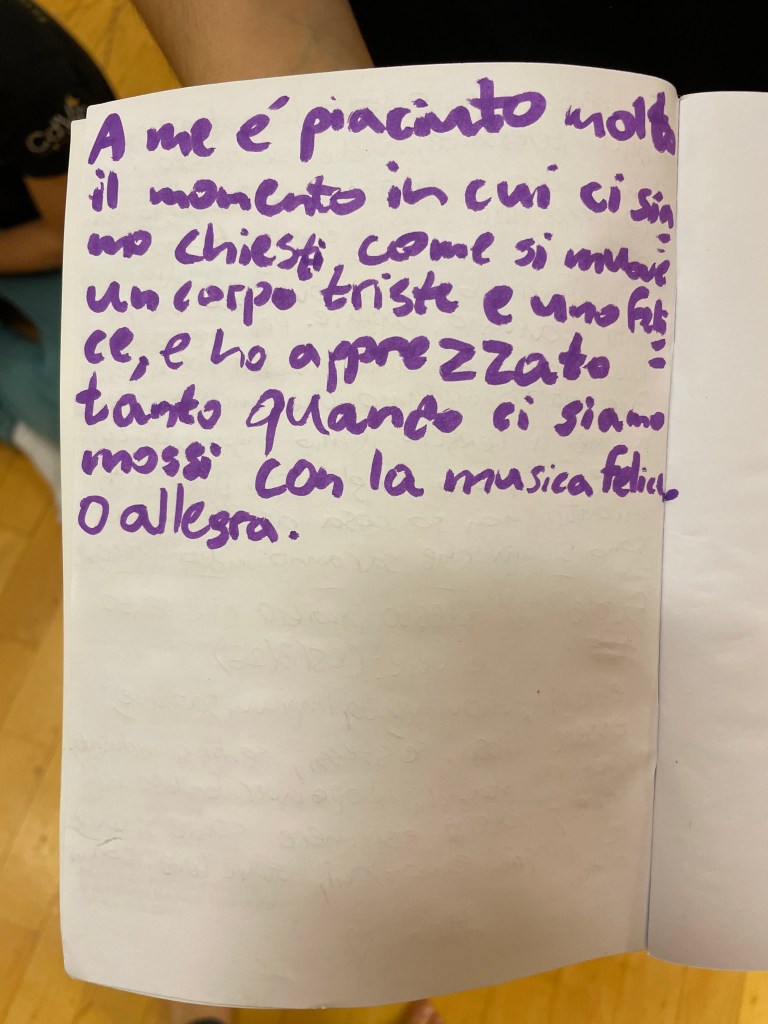 A me é piaciuto molto
il momento in cui ci sia=
mo chiesti come si muove
un corpo triste e uno feli=
ce, e ho apprezzato
tanto quando ci siamo
mossi con la musica felice
O allegra.